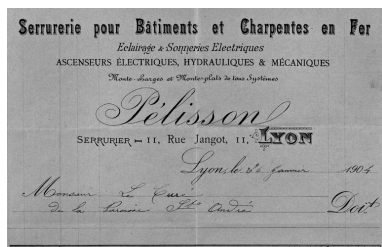 Serrurerie pour Bâtiments et Charpentes en Fer
Eclairage & Sonneries Electriques
ASCENSEURS ÉLECTRIQUES, HYDRAULIQUES & MÉCANIQUES
Monte-charges et Monte-plats de tous Systèmes
Pélisson
SERRURIER — 11, Rue Jangot, 11, LYON
Lyon, le 26 janvier 1904
Monsieur Le Curé
de la Paroisse St André Doit